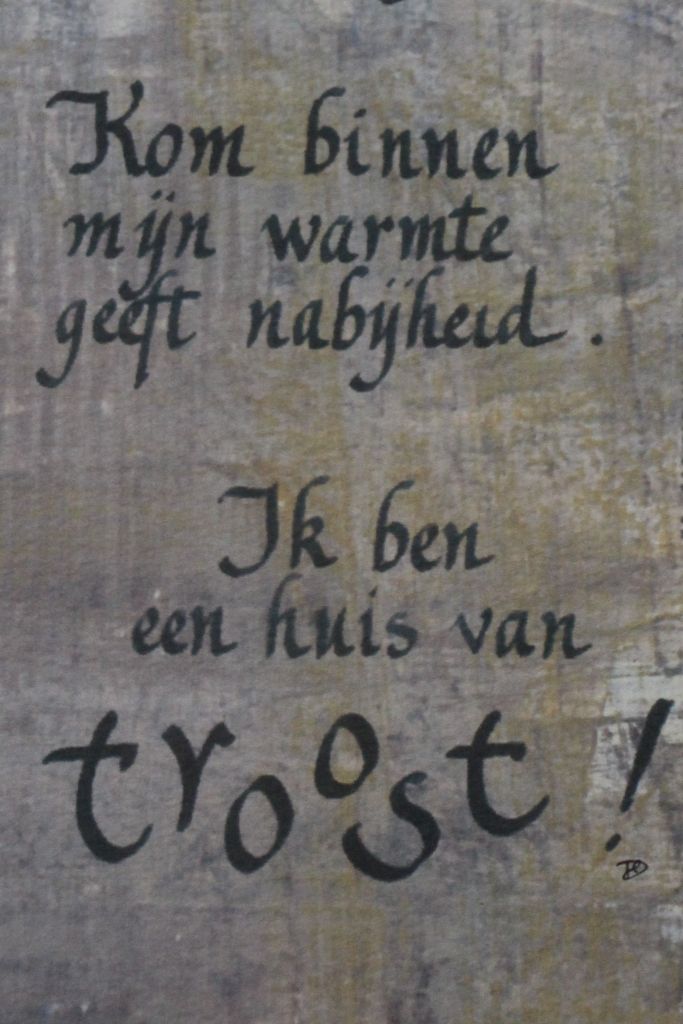 Kom binnen
mijn warmte
geeft nabijheid.
Ik ben
een huis van
troost!